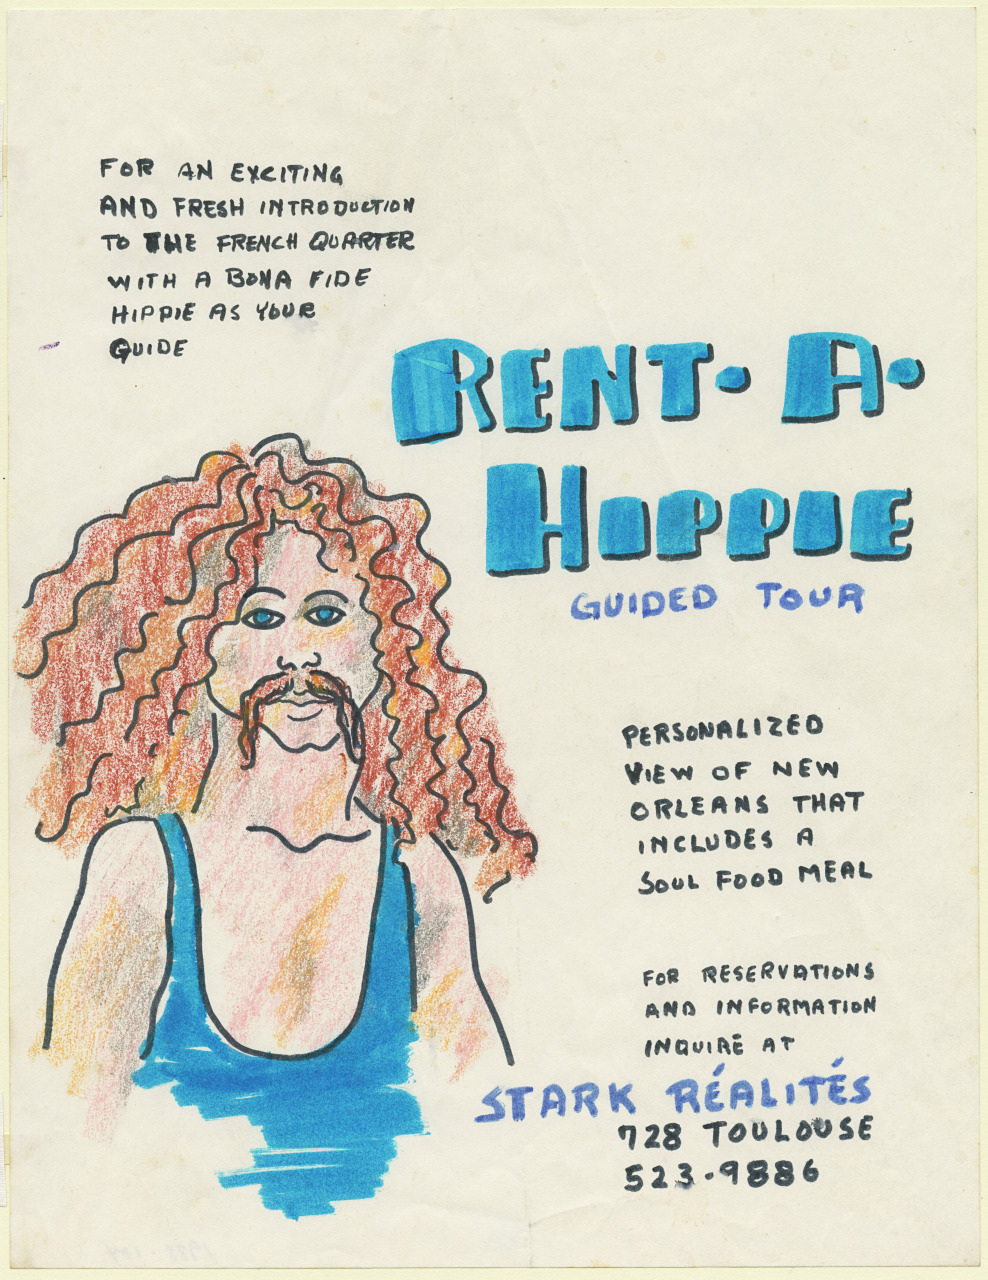 FOR AN EXCITING
AND FRESH INTRODUCTION
TO THE FRENCH QUARTER
WITH A BONA FIDE
HIPPIE AS YOUR
GUIDE
RENT·A·
HIPPIE
GUIDED TOUR
PERSONALIZED
VIEW OF NEW
ORLEANS THAT
INCLUDES A
SOUL FOOD MEAL
FOR RESERVATIONS
AND INFORMATION
INQUIRE AT
STARK RÉALITÉS
728 TOULOUSE
523·9886